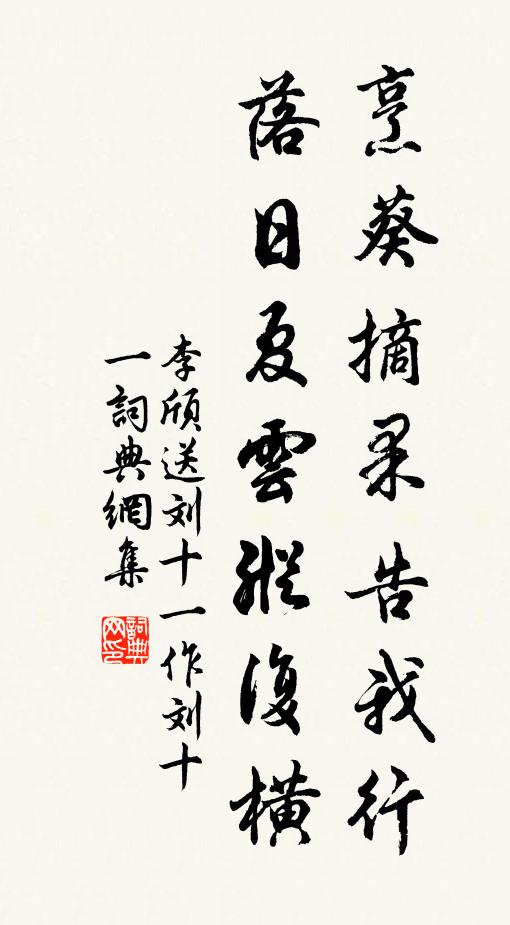 烹葵摘果告我行
落日夏雲縱復橫
李頎送刘十一作刘十
一詞典網集
詞典网印